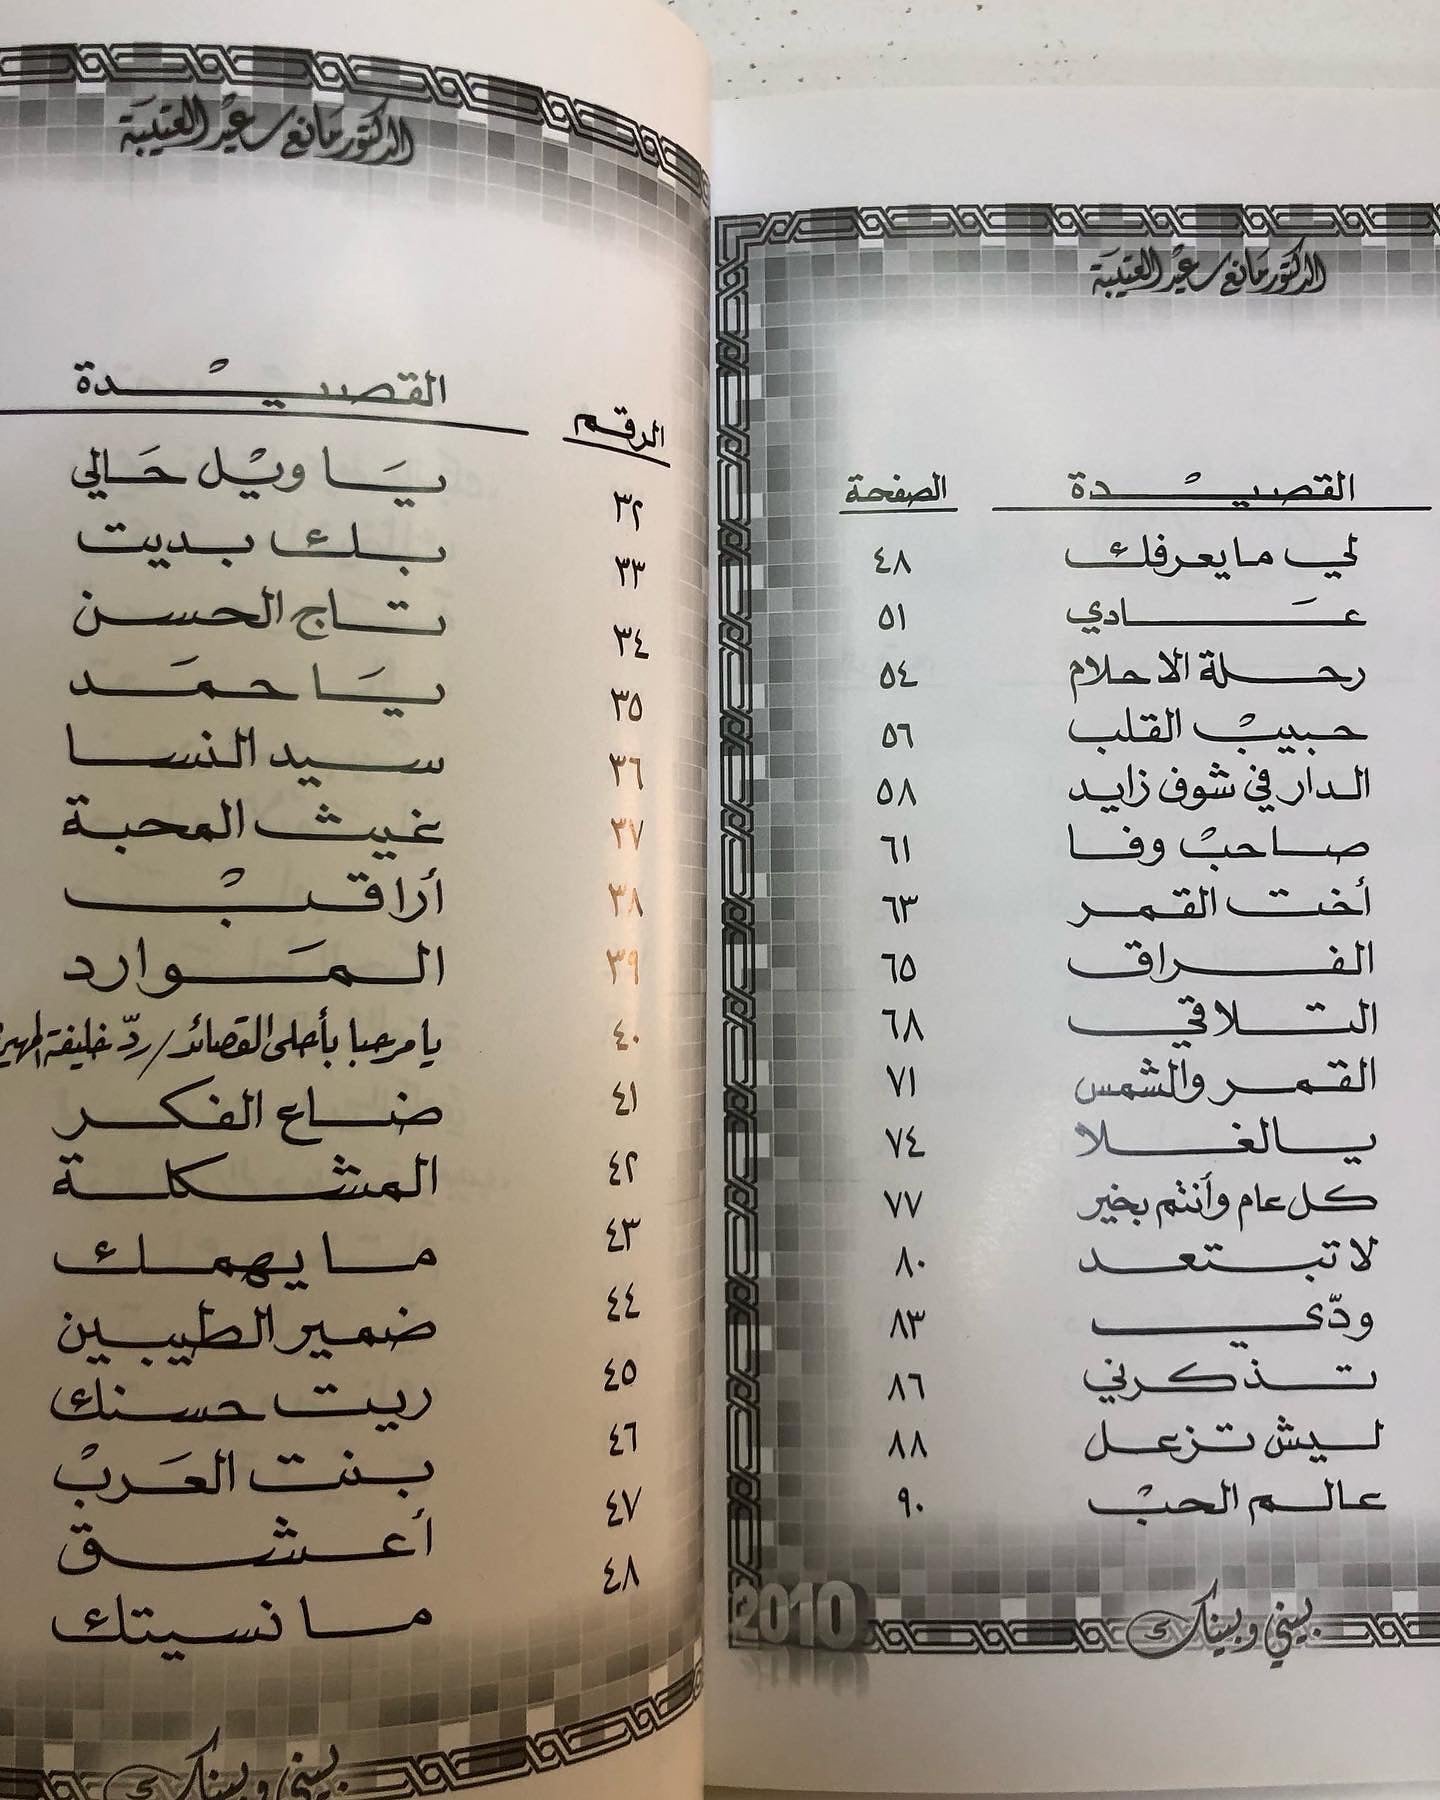 الدكتور مانع سعيد العتيبة
القصيدة الصفحة
لي ما يعرفك ٤٨
عادي ٥١
رحلة الاحلام ٥٤
حبيبْ القلب ٥٦
الدار في شوف زايد ٥٨
صاحبْ وفا ٦١
أخت القمر ٦٣
الفراق ٦٥
التلاقي ٦٨
القمر والشمس ٧١
يالغلا ٧٤
كل عام وأنتم بخير ٧٧
لا تبتعد ٨٠
ودّي ٨٣
تذكرني ٨٦
ليش تزعل ٨٨
عالم الحبْ ٩٠
2010
بيني وبينك
الدكتور مانع سعيد العتيبة
الرقم القصيْدة
٣٢ يَا ويْل حَالي
٣٣ بك بديت
٣٤ تاج الحسن
٣٥ يَا حمَد
٣٦ سيد النسا
٣٧ غيث المحبة
٣٨ أراقبْ
٣٩ المَوارد
٤٠ يا مرحبا بأحلى القصائد / ردّ خليفة
٤١ ضاع الفكر
٤٢ المشكلة
٤٣ ما يهمك
٤٤ ضمير الطيبين
٤٥ ريت حسنك
٤٦ بنت العَربْ
٤٧ أعشق
٤٨ ما نسيتك
بيني وبينك